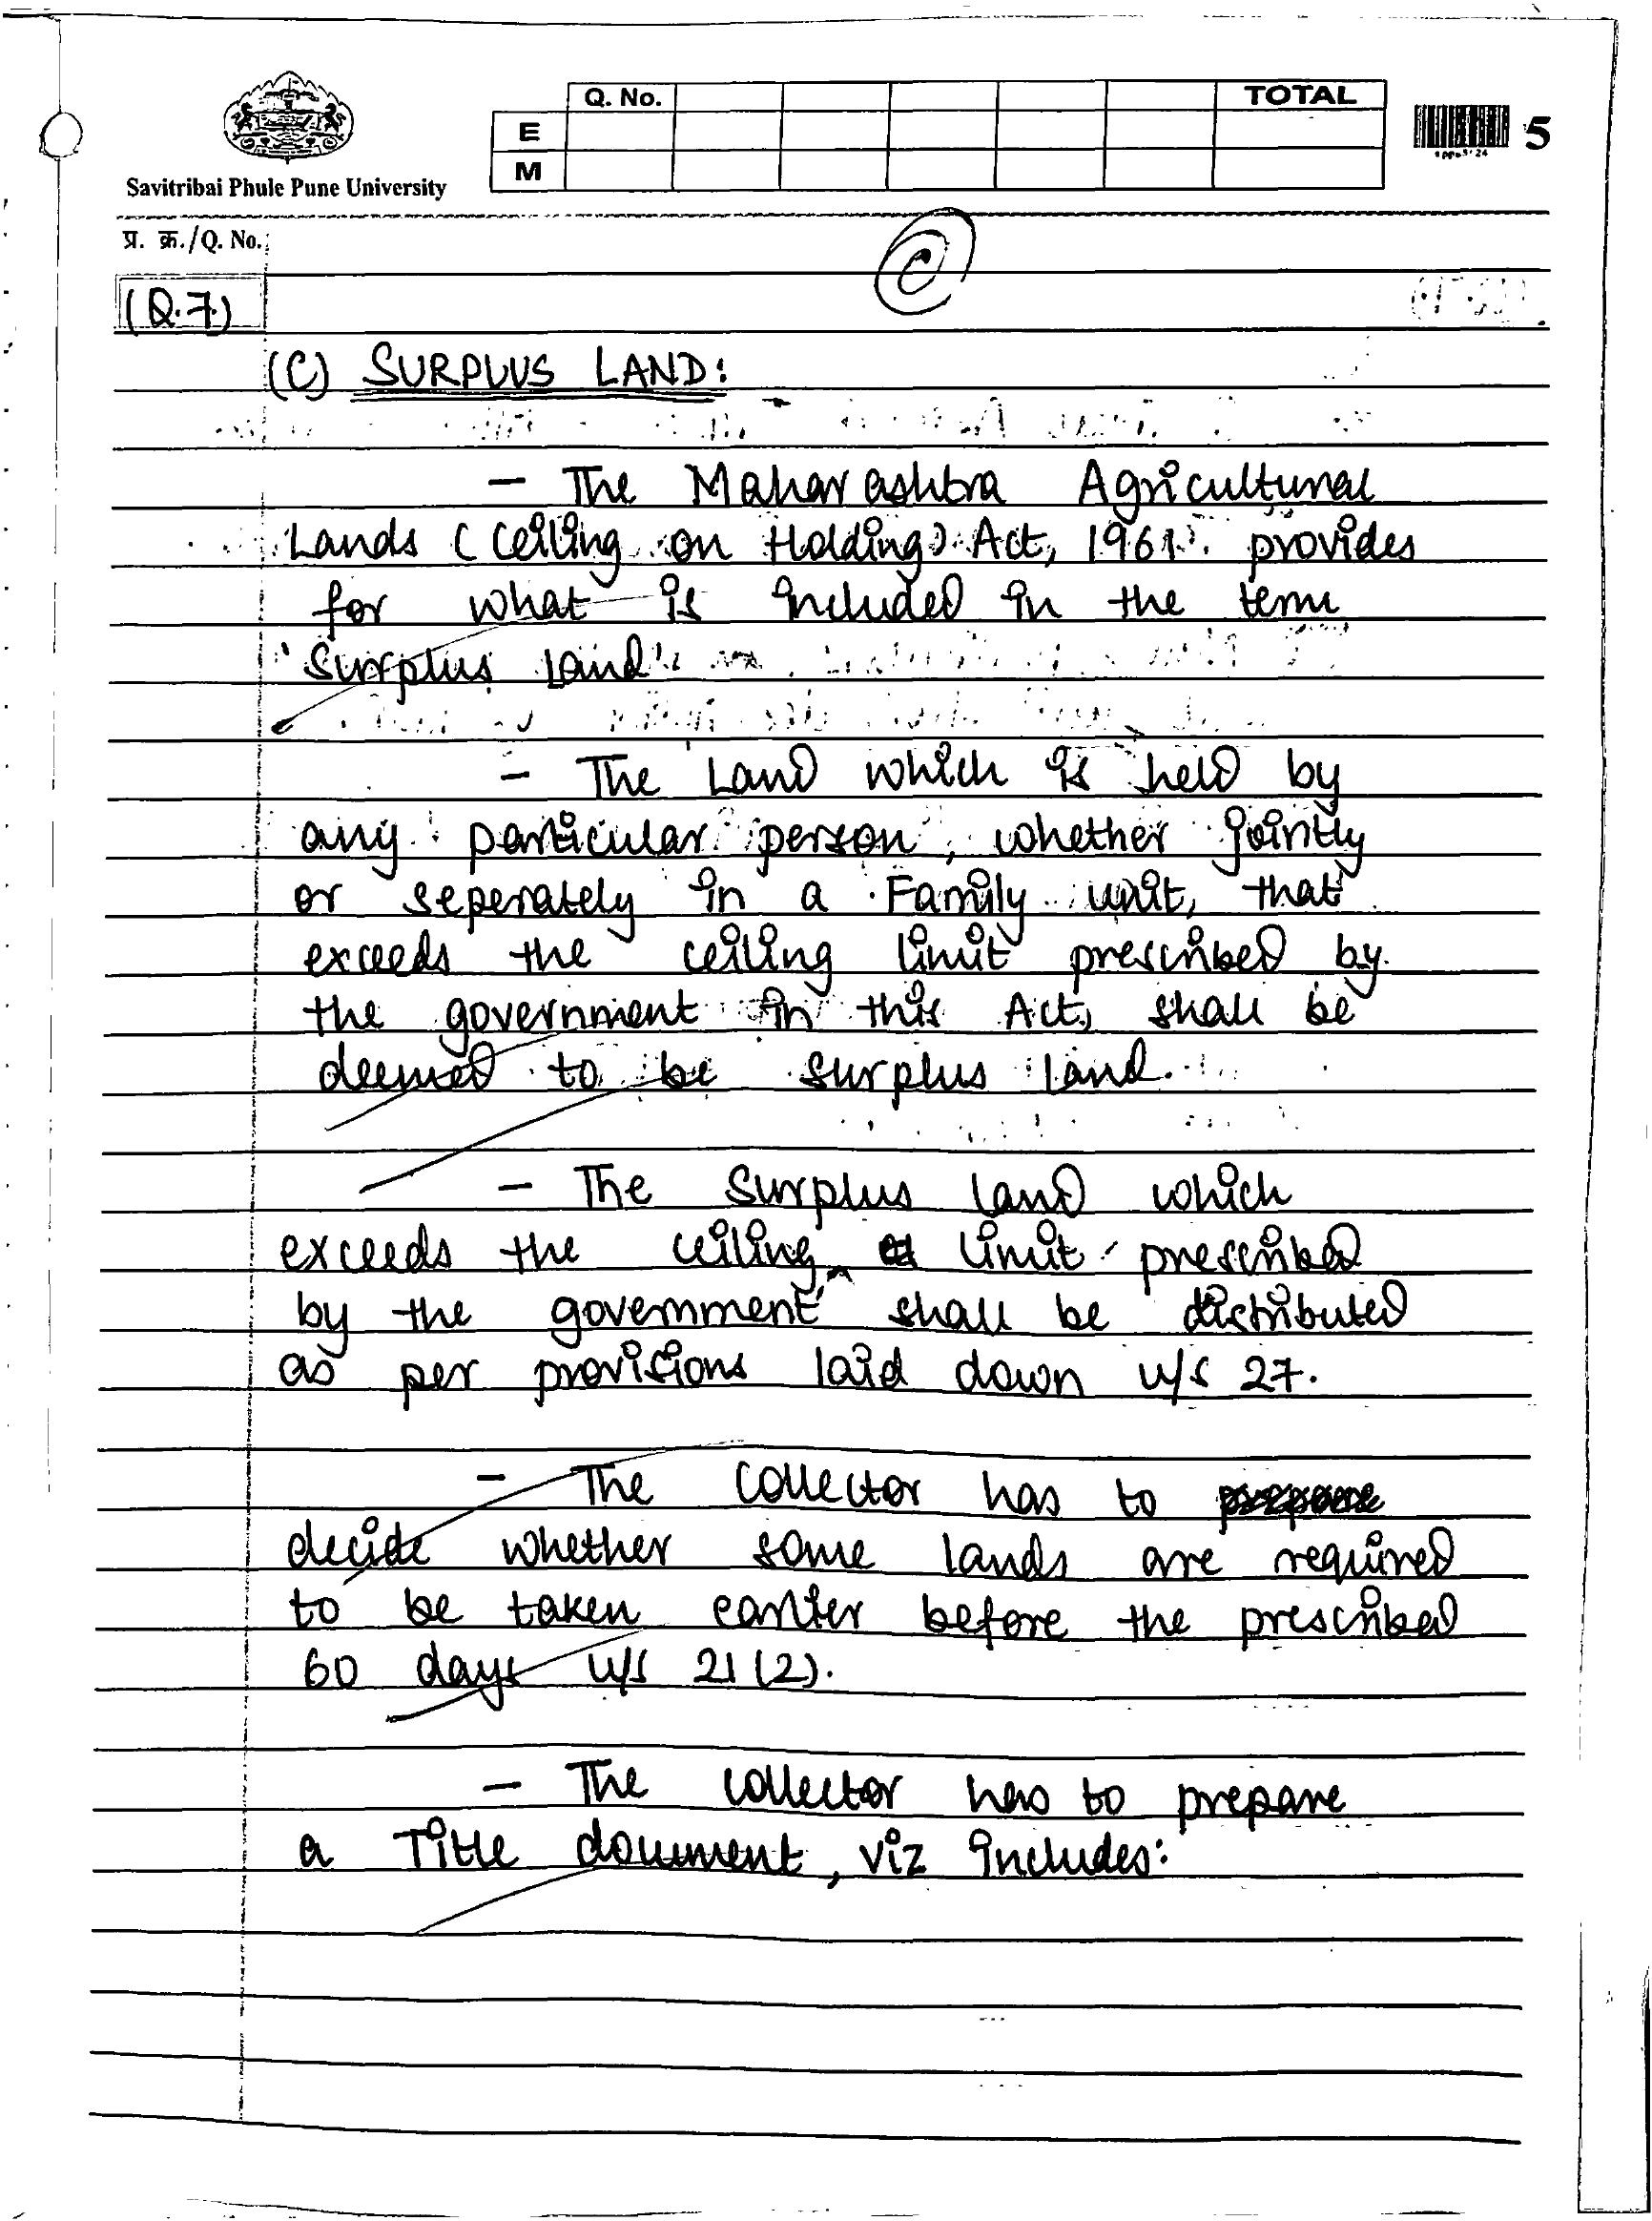 Q. No. TOTAL
E
M
5
Savitribai Phule Pune University
प्र. क्र./Q. No.
C
(Q.7)
(C) SURPLUS LAND:
- The Maharashtra Agricultural
Lands (Ceiling on Holding) Act, 1961 provides
for what is included in the term
'Surplus Land'
- The Land which is held by
any particular person, whether jointly
or seperately in a Family unit, that
exceeds the ceiling limit prescribed by
the government in this Act, shall be
deemed to be surplus land.
- The Surplus land which
exceeds the ceiling limit prescribed
by the government shall be distributed
as per provisions laid down u/s 27.
- The Collector has to prepare
decide whether some lands are required
to be taken earlier before the prescribed
60 days u/s 21(2).
- The collector has to prepare
a Title document, viz includes: